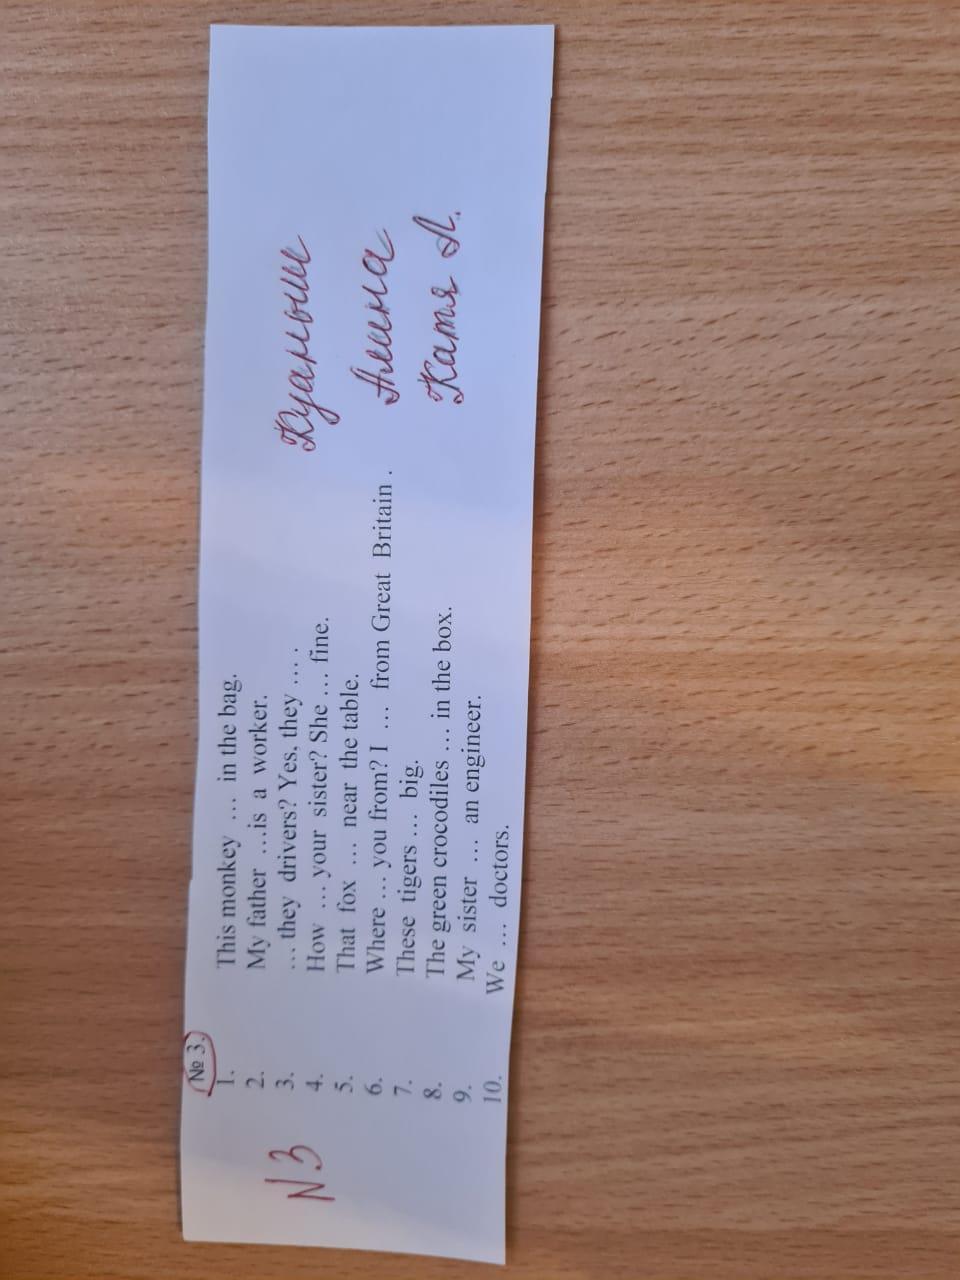 № 3.
1. This monkey … in the bag.
2. My father …is a worker.
3. … they drivers? Yes, they … .
4. How … your sister? She … fine.
5. That fox … near the table.
6. Where … you from? I … from Great Britain .
7. These tigers … big.
8. The green crocodiles … in the box.
9. My sister … an engineer.
10. We … doctors.
N 3
Куаныш
Амина
Катя А.